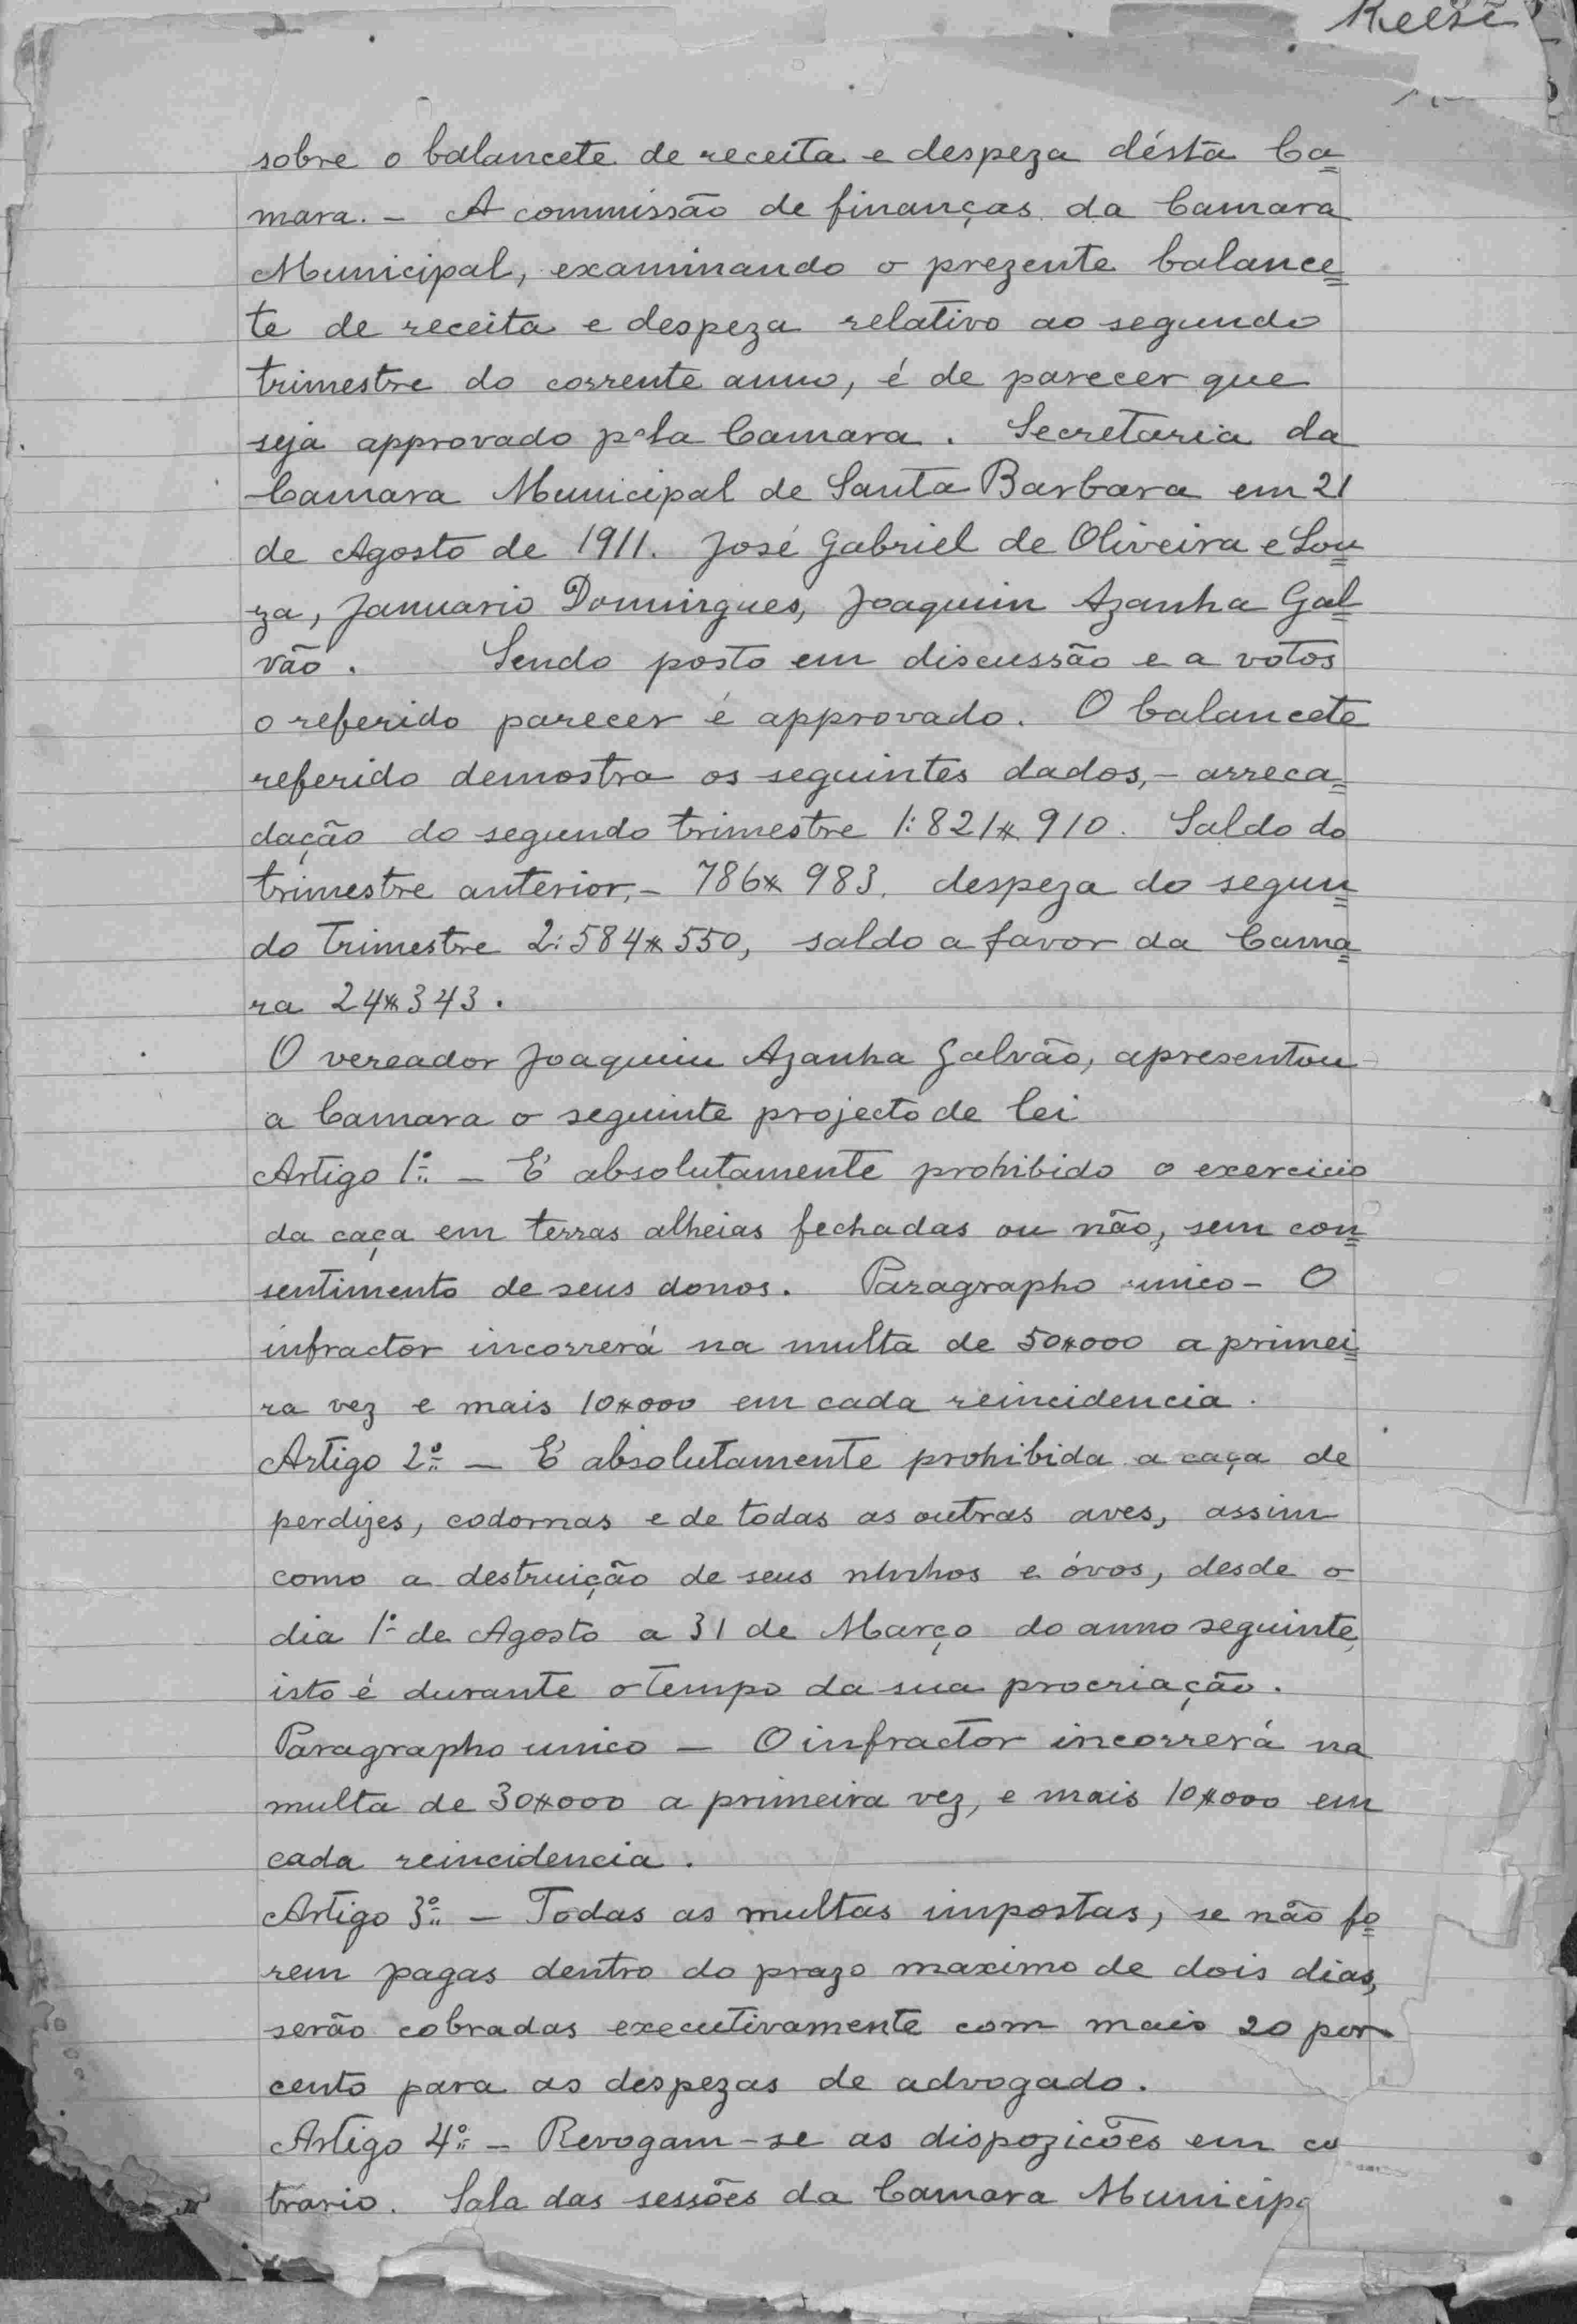 sobre o balancete de receita e despeza désta Ca=
mara. - A commissão de finanças da Camara
Municipal, examinando o prezente balance=
te de receita e despeza relativo ao segundo
trimestre do corrente anno, é de parecer que
seja approvado pela Camara. Secretaria da
Camara Municipal de Santa Barbara em 21
de Agosto de 1911. José Gabriel de Oliveira e Sou=
za, Januario Domingues, Joaquim Azanha Gal=
vão. Sendo posto em discussão e a votos
o referido parecer é approvado. O balancete
referido demostra os seguintes dados, - arreca=
dação do segundo trimestre 1:821$910. Saldo do
trimestre anterior, - 786$983. despeza do segun=
do trimestre 2:584$550, saldo a favor da Cama=
ra 24$343.
O vereador Joaquim Azanha Galvão, apresentou
a Camara o seguinte projecto de lei
Artigo 1º - É absolutamente prohibido o exercicio
da caça em terras alheias fechadas ou não, sem con=
sentimento de seus donos. Paragrapho unico - O
infractor incorrerá na multa de 50$000 a primei=
ra vez e mais 10$000 em cada reincidencia.
Artigo 2º - É absolutamente prohibida a caça de
perdizes, codornas e de todas as outras aves, assim
como a destruição de seus ninhos e óvos, desde o
dia 1º de Agosto a 31 de Março do anno seguinte,
isto é durante o tempo da sua procriação.
Paragrapho unico - O infractor incorrerá na
multa de 30$000 a primeira vez, e mais 10$000 em
cada reincidencia.
Artigo 3º - Todas as multas impostas, se não fo=
rem pagas dentro do prazo maximo de dois dias,
serão cobradas executivamente com mais 20 por
cento para as despezas de advogado.
Artigo 4º - Revogam-se as dispozicões em co
trario. Sala das sessões da Camara Municipa